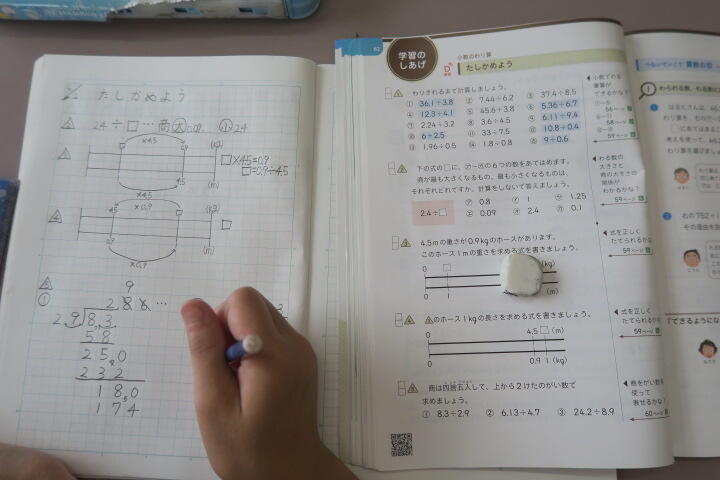 たしかめよう
24÷□… 商大 0.09 小 2.4
×4.5
(kg)
□×4.5=0.9
□=0.9÷4.5
(m)
×4.5
×0.9
(kg)
(m)
×0.9
9
2 8 6 …
2.9 8.3
5 8
2 5 0
2 3 2
1 8 0
1 7 4
62
学習の
しあげ
小数のわり算
たしかめよう
わりきれるまで計算しましょう。
① 36.1÷3.8 ② 7.44÷6.2 ③ 37.4÷8.5
④ 12.3÷4.1 ⑤ 45.6÷3.8 ⑥ 5.36÷6.7
⑦ 2.24÷3.2 ⑧ 3.6÷4.5 ⑨ 6.11÷9.4
⑩ 6÷2.5 ⑪ 33÷7.5 ⑫ 10.8÷0.4
⑬ 1.96÷0.5 ⑭ 1.8÷0.8 ⑮ 9÷0.6
小数でわる
筆算が
できるかな?
56ページ
58ページ
59ページ
下の式の□に、㋐~㋕の6つの数をあてはめます。
商が最も大きくなるもの、最も小さくなるものは、
それぞれどれですか。計算をしないで答えましょう。
2.4÷□
㋐ 0.8 ㋑ 1 ㋒ 1.25
㋓ 0.09 ㋔ 2.4 ㋕ 0.1
わる数の
大きさと
商の大きさの
関係が
わかるかな?
59ページ
4.5mの重さが0.9kgのホースがあります。
このホース1mの重さを求める式を書きましょう。
0 □ (kg)
0 1 (m)
式を正しく
たてられるかな?
59ページ
のホース1kgの長さを求める式を書きましょう。
0 4.5 □ (m)
0 0.9 1 (kg)
式を正しく
たてられるかな?
59ページ
商は四捨五入して、上から2けたのがい数で
求めましょう。
① 8.3÷2.9 ② 6.13÷4.7 ③ 24.2÷8.9
商をがい数を
使って
表せるかな?
60ページ
つないでいこう 算数の目